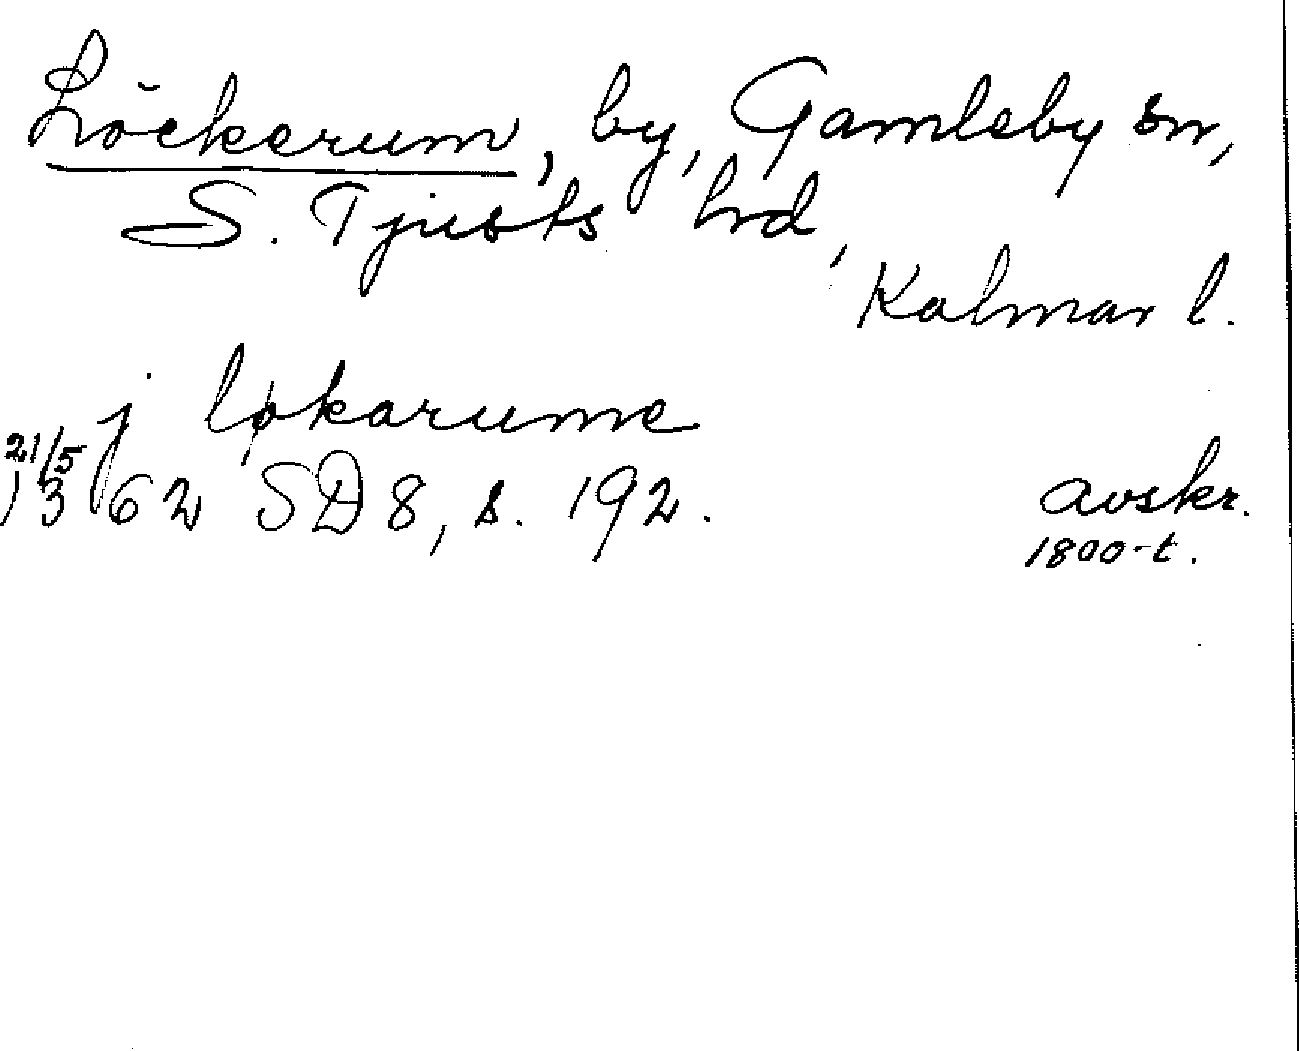 Löckerum, by, Gamleby sn,
S. Tjusts hd,
Kalmar l.
j løkarume
21/5 1362 SD 8, s. 192. avskr.
1800-t.